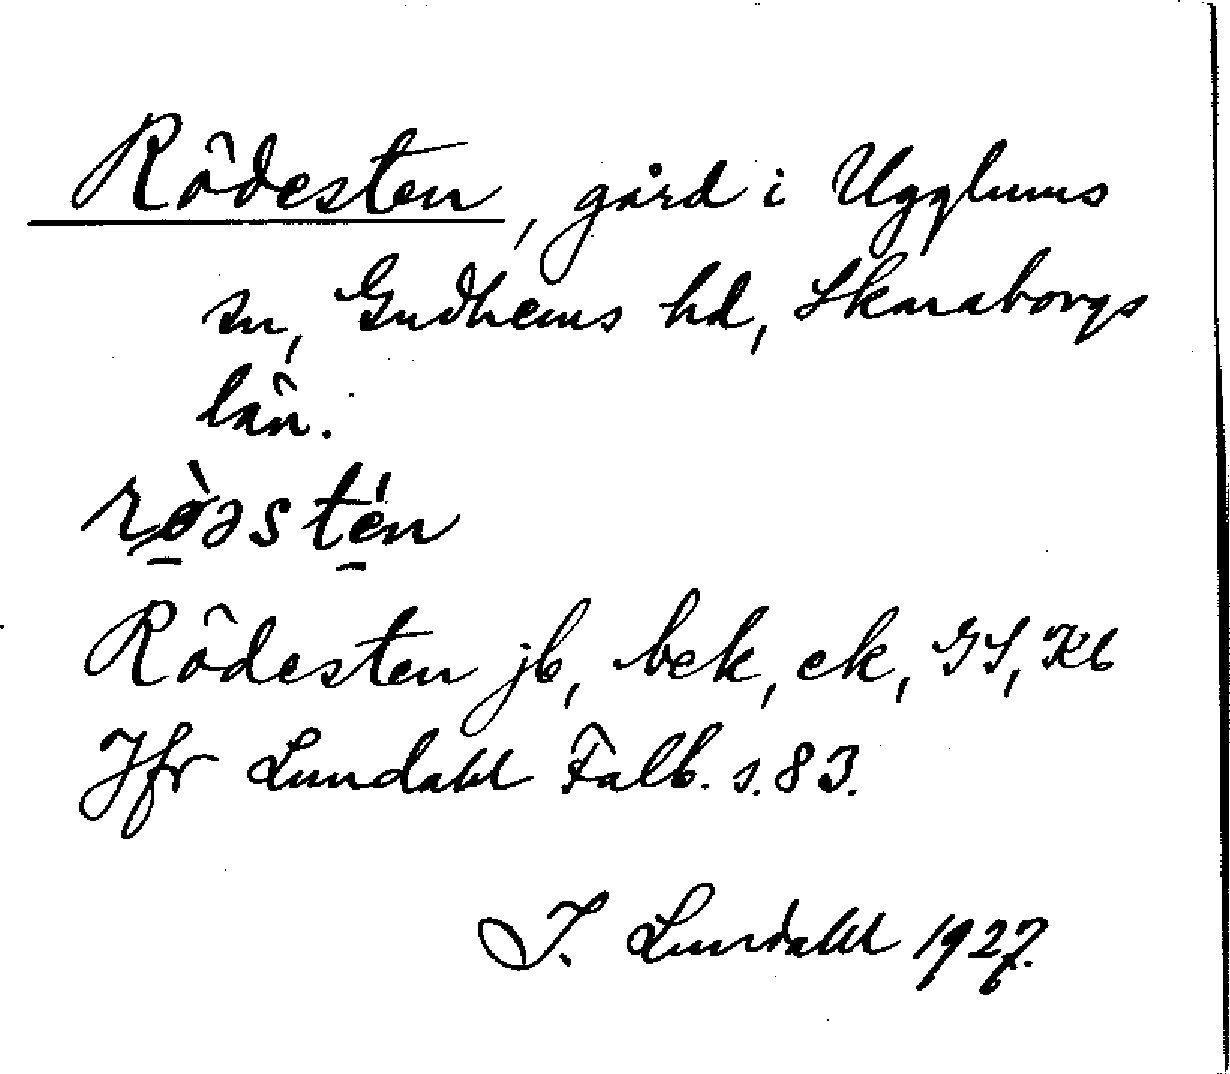 Rödesten, gård i Ugglums
sn, Gudhems hd, Skaraborgs
län.
rø̱̀əs té̱n
Rödesten jb, bek, ek, GS, Kb
Jfr Lundahl Falb. s. 83.
I. Lundahl 1927.